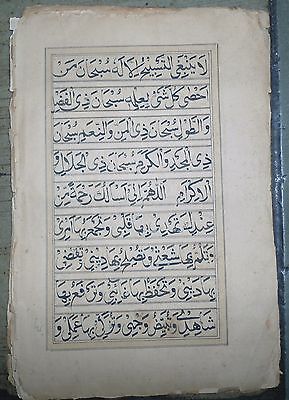 لا ينبغي التسبيح الا له سبحان من
احصى كل شئ بعلمه سبحان ذي الفضل
والطول سبحان ذي المن والنعم سبحان
ذي المجد والكرم سبحان ذي الجلال و
الاكرام اللهم اني اسالك رحمة من
عندك تهدي بها قلبي وتجمع بها امري
وتلم بها شعثي وتصلح بها ديني وتقضي
بها ديني وتحفظ بها غائبي وترفع بها
شاهدي وتبيض وجهي وتزكي بها عملي و